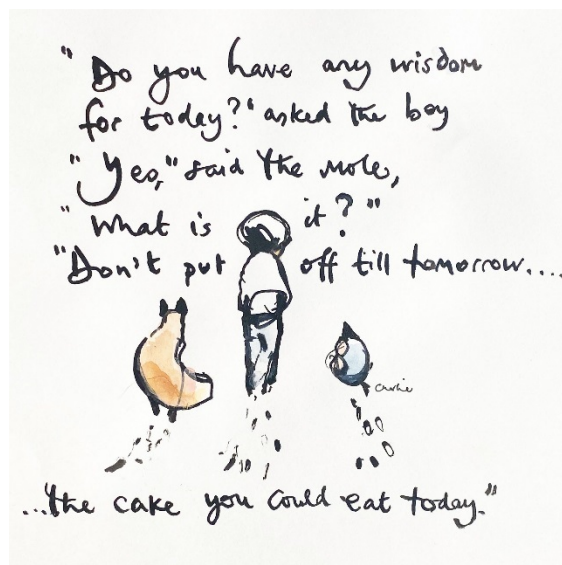 "Do you have any wisdom
for today?" asked the boy
"Yes," said the mole,
"What is it?"
"Don't put off till tomorrow....
Charlie
..."the cake you could eat today."